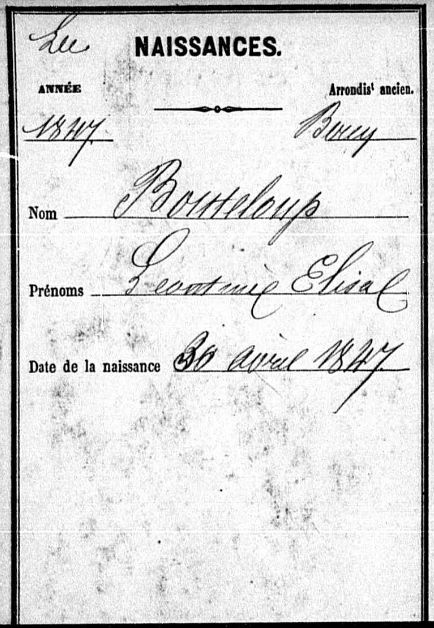 Lu NAISSANCES.
ANNÉE Arrondisᵗ ancien.
1847 Bercy
Nom Bouteloup
Prénoms Léontine Elisa
Date de la naissance 30 avril 1847.